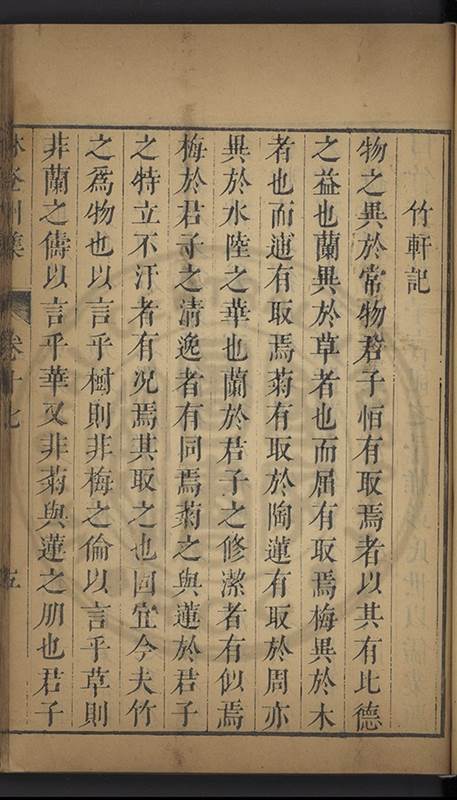 竹軒記
物之異於常物君子恒有取焉者以其有比德
之益也蘭異於草者也而屈有取焉梅異於木
者也而逋有取焉菊有取於陶蓮有取於周亦
異於水陸之華也蘭於君子之修潔者有似焉
梅於君子之清逸者有同焉菊之與蓮於君子
之特立不汙者有况焉其取之也固宜今夫竹
之爲物也以言乎樹則非梅之倫以言乎草則
非蘭之儔以言乎華又非菊與蓮之朋也君子
集 卷十七 五